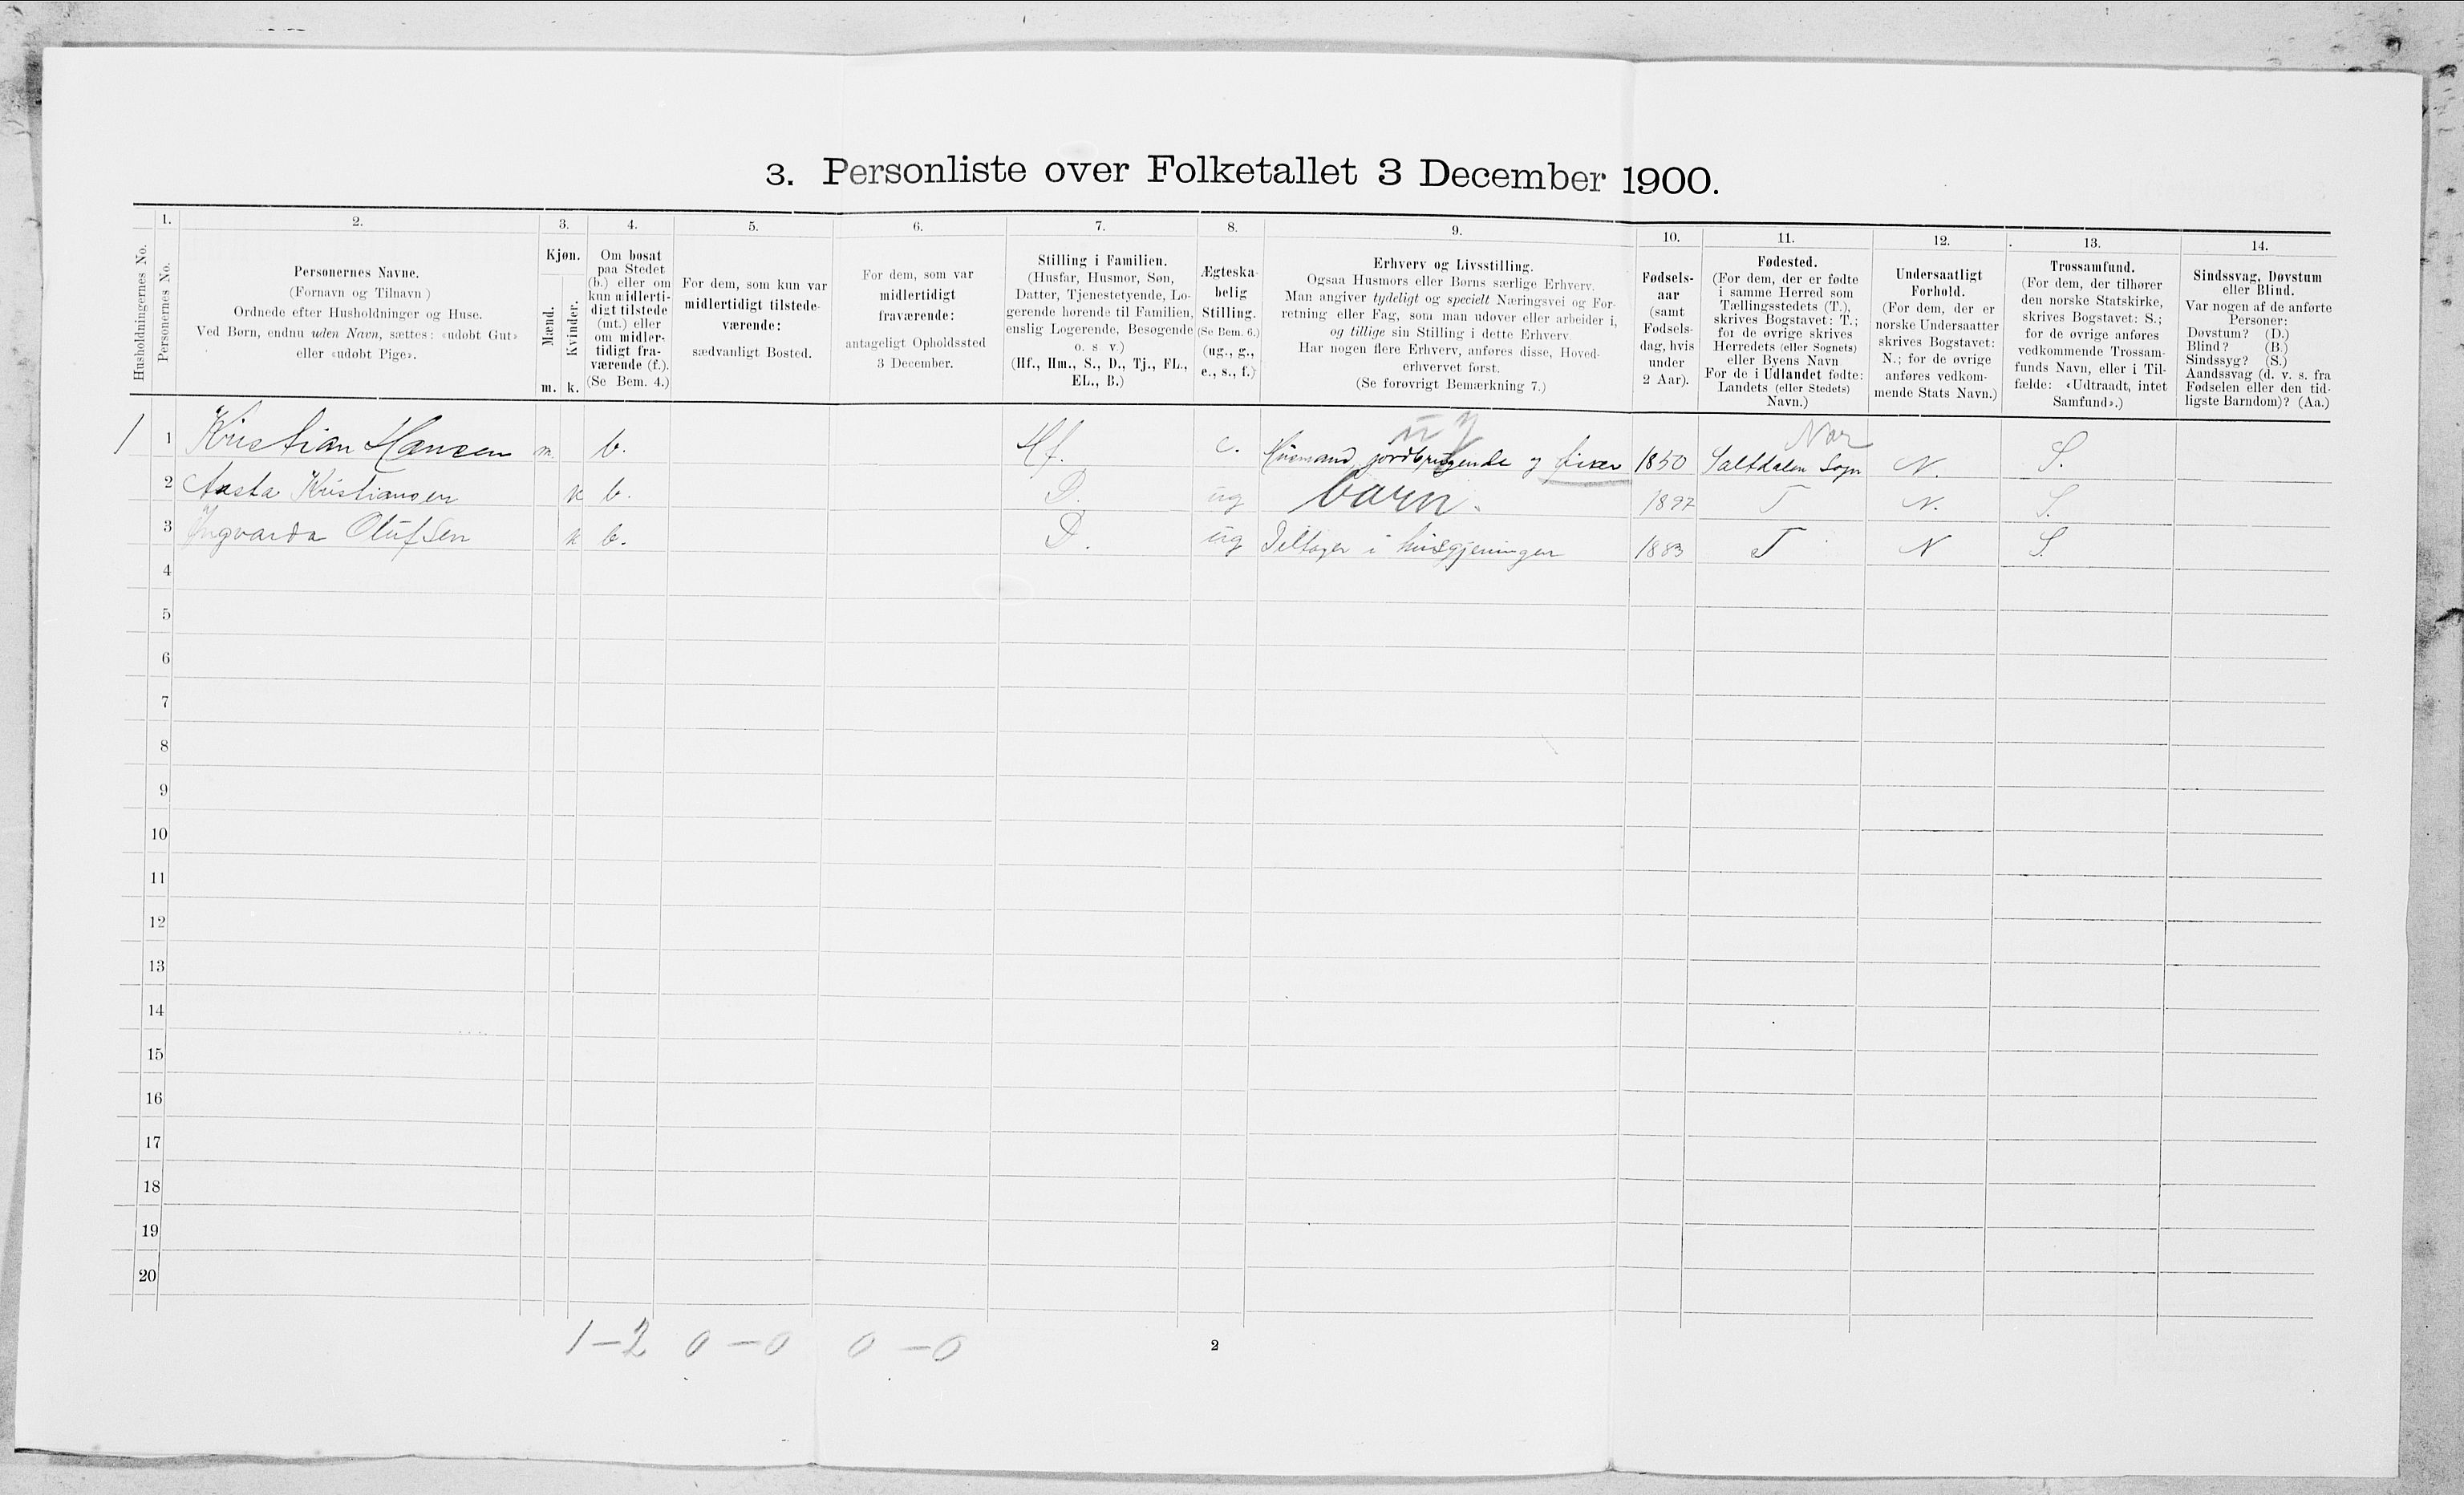 3. Personliste over Folketallet 3 December 1900.
Husholdningernes No.
1.
Personernes No.
2.
Personernes Navne.
(Fornavn og Tilnavn)
Ordnede efter Husholdninger og Huse.
Ved Børn, endnu uden Navn, sættes: «udøbt Gut»
eller «udøbt Pige».
3.
Kjøn.
Mænd.
Kvinder.
m. k.
4.
Om bosat
paa Stedet
(b.) eller om
kun midlerti-
digt tilstede
(mt.) eller
om midler-
tidigt fra-
værende (f.).
(Se Bem. 4.)
5.
For dem, som kun var
midlertidigt tilstede-
værende:
sædvanligt Bosted.
6.
For dem, som var
midlertidigt
fraværende:
antageligt Opholdssted
3 December.
7.
Stilling i Familien.
(Husfar, Husmor, Søn,
Datter, Tjenestetyende, Lo-
gerende hørende til Familien,
enslig Logerende, Besøgende
o. s v.)
(Hf., Hm., S., D., Tj., FL.,
EL., B.)
8.
Ægteska-
belig
Stilling.
(Se Bem. 6.)
(ug., g.,
e., s., f.)
9.
Erhverv og Livsstilling.
Ogsaa Husmors eller Børns særlige Erhverv.
Man angiver tydeligt og specielt Næringsvei og For-
retning eller Fag, som man udøver eller arbeider i,
og tillige sin Stilling i dette Erhverv.
Har nogen flere Erhverv, anføres disse, Hoved-
erhvervet først.
(Se forøvrigt Bemærkning 7.)
10.
Fødsels-
aar
(samt
Fødsels-
dag, hvis
under
2 Aar).
11.
Fødested.
(For dem, der er fødte
i samme Herred som
Tællingsstedets (T.),
skrives Bogstavet: T.;
for de øvrige skrives
Herredets (eller Sognets)
eller Byens Navn
For de i Udlandet fødte:
Landets (eller Stedets)
Navn.)
12.
Undersaatligt
Forhold.
(For dem, der er
norske Undersaatter
skrives Bogstavet:
N.; for de øvrige
anføres vedkom-
mende Stats Navn.)
13.
Trossamfund.
(For dem, der tilhører
den norske Statskirke,
skrives Bogstavet: S.;
for de øvrige anføres
vedkommende Trossam-
funds Navn, eller i Til-
fælde: «Udtraadt, intet
Samfund».)
14.
Sindssvag, Døvstum
eller Blind.
Var nogen af de anførte
Personer:
Døvstum? (D.)
Blind? (B.)
Sindssyg? (S.)
Aandssvag (d. v. s. fra
Fødselen eller den tid-
ligste Barndom)? (Aa.)
1 1 Kristian Hansen m. b. Hf. e. Husmand, jordbrugende og fisker 1850 Saltdalen Sogn N. S.
2 Aasta Kristiansen k b. D. ug barn. 1897 T N. S.
3 Ingvarda Olufsen k b. D. ug Deltager i husgjerningen 1883 T N S.
4
5
6
7
8
9
10
11
12
13
14
15
16
17
18
19
20
1-2 0-0 0-0
2